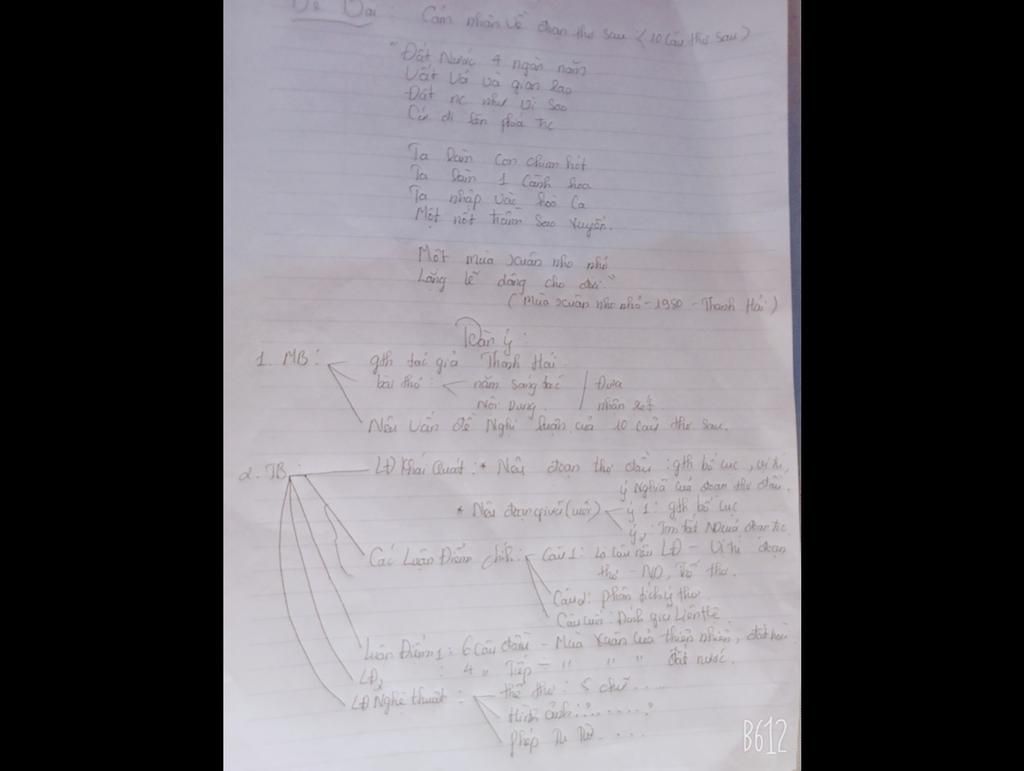 Đề Bài: Cảm nhận về đoạn thơ sau (10 câu thơ sau)
"Đất Nước 4 ngàn năm
Vất vả và gian lao
Đất nc như vì sao
Cứ đi lên phía tc
Ta làm con chim hót
Ta làm 1 cành hoa
Ta nhập vào hoà ca
Một nốt trầm sao xuyến.
Một mùa xuân nho nhỏ
Lặng lẽ dâng cho đời"
(Mùa xuân nho nhỏ - 1980 - Thanh Hải)
Dàn ý:
1. MB: gth tác giả Thanh Hải
bài thơ: năm sáng tác / Đưa
Nội Dung nhận xét
Nêu vấn đề Nghị luận của 10 câu thơ sau.
2. TB: LĐ Khái Quát: * Nếu đoạn thơ đầu: gth bố cục, vị trí,
ý nghĩa của đoạn thơ đầu.
* Nếu đoạn (cuối) ý 1: gth bố cục
ý 2: Tóm tắt ND của đoạn tc
Các Luận Điểm chính: Câu 1: là câu nêu LĐ - Vị trí đoạn
thơ - ND,
Câu 2: phân tích ý thơ
Câu cuối: Đánh giá Liên hệ
Luận Điểm 1: 6 câu đầu - Mùa xuân của thiên nhiên, đất trời
LĐ2: 4 " Tiếp - " " " đất nước.
LĐ Nghệ thuật: thể thơ: 5 chữ....
Hình ảnh:
phép Tu Từ....
B612